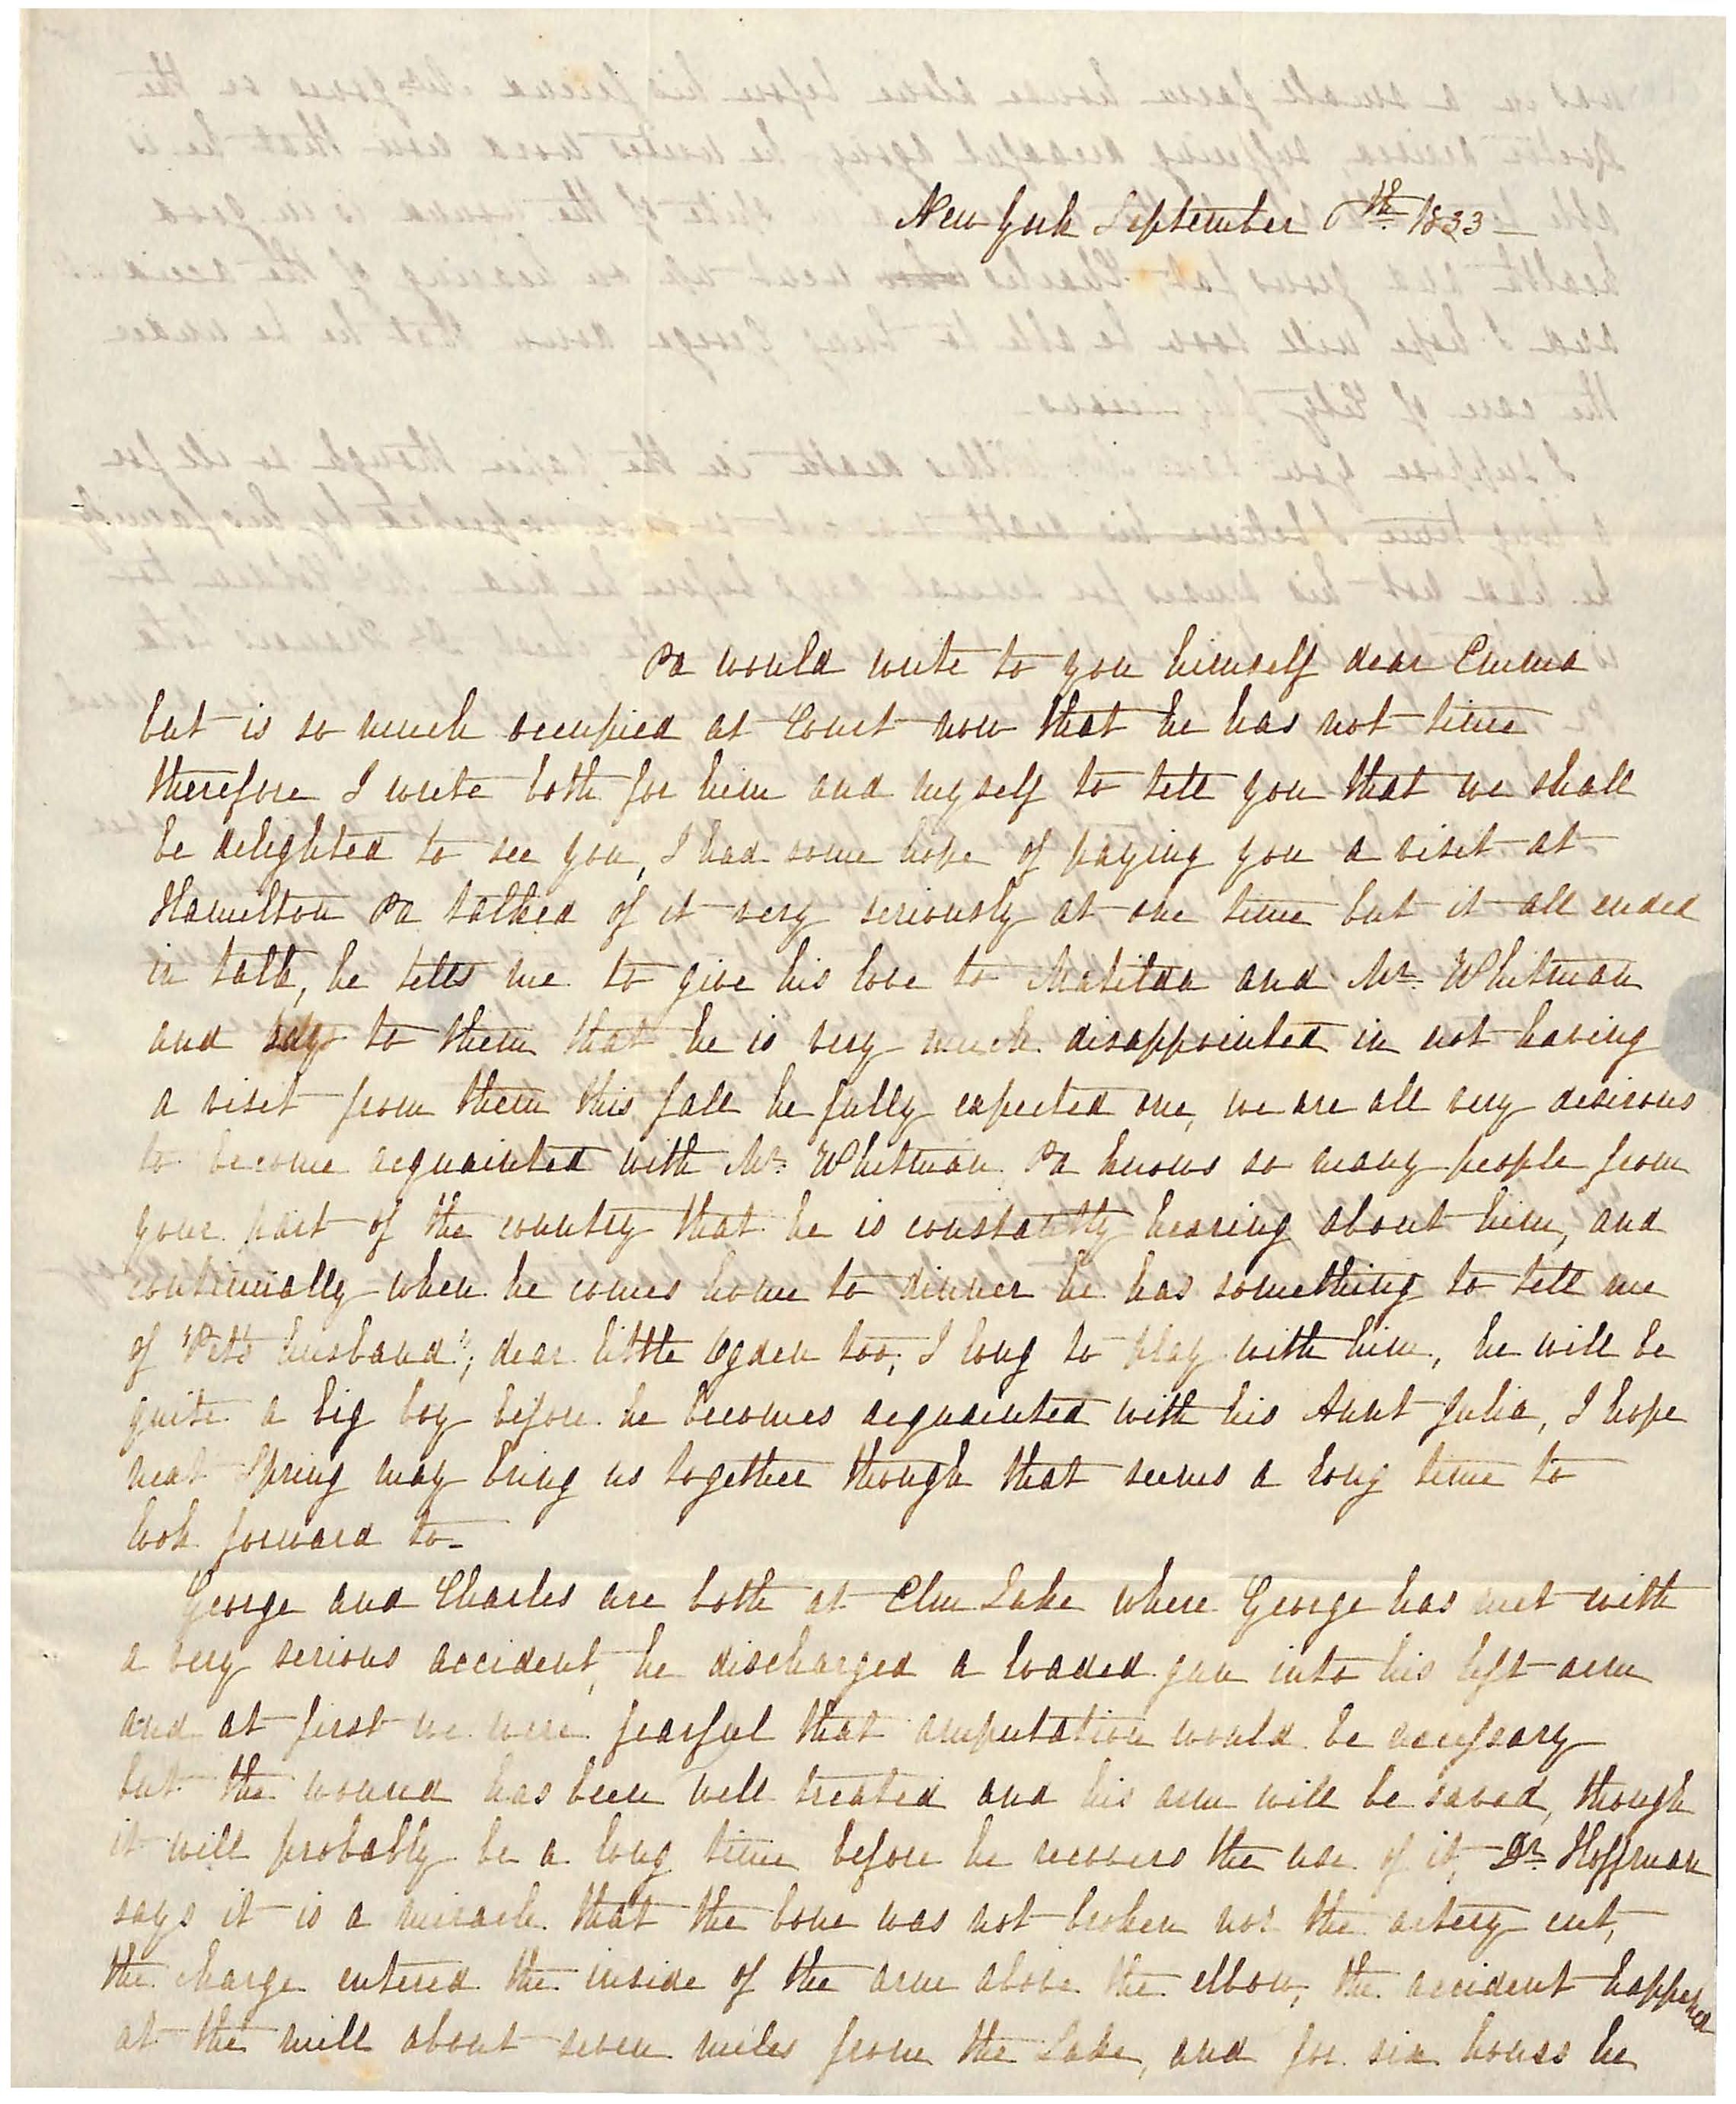 New York September 6th 1833
Pa would write to you himself dear Emma
but is so much occupied at Court now that he has not time
therefore I write both for him and myself to tell you that we shall
be delighted to see you, I had some hope of paying you a visit at
Hamilton Pa talked of it very seriously at one time but it all ended
in talk, he tells me to give his love to Matilda and Mr. Whitman
and say to them that he is very much disappointed in not having
a visit from them this fall he fully expected one, we are all very desirous
to become acquainted with Mr. Whitman Pa knows so many people from
your part of the country that he is constantly hearing about him, and
continually when he comes home to dinner he has something to tell me
of "Pets husband", dear little Ogden too, I long to play with him, he will be
quite a big boy before he becomes acquainted with his Aunt Julia, I hope
next Spring may bring us together though that seems a long time to
look forward to_
George and Charles are both at Elm Lake where George has met with
a very serious accident, he discharged a loaded gun into his left arm
and at first we were fearful that amputation would be necessary
but the wound has been well treated and his arm will be saved, though
it will probably be a long time before he recovers the use of it, Dr. Hoffman
says it is a miracle that the bone was not broken nor the artery cut,
the charge entered the inside of the arm above the elbow, the accident happened
at the mill about seven miles from the Lake, and for six hours he